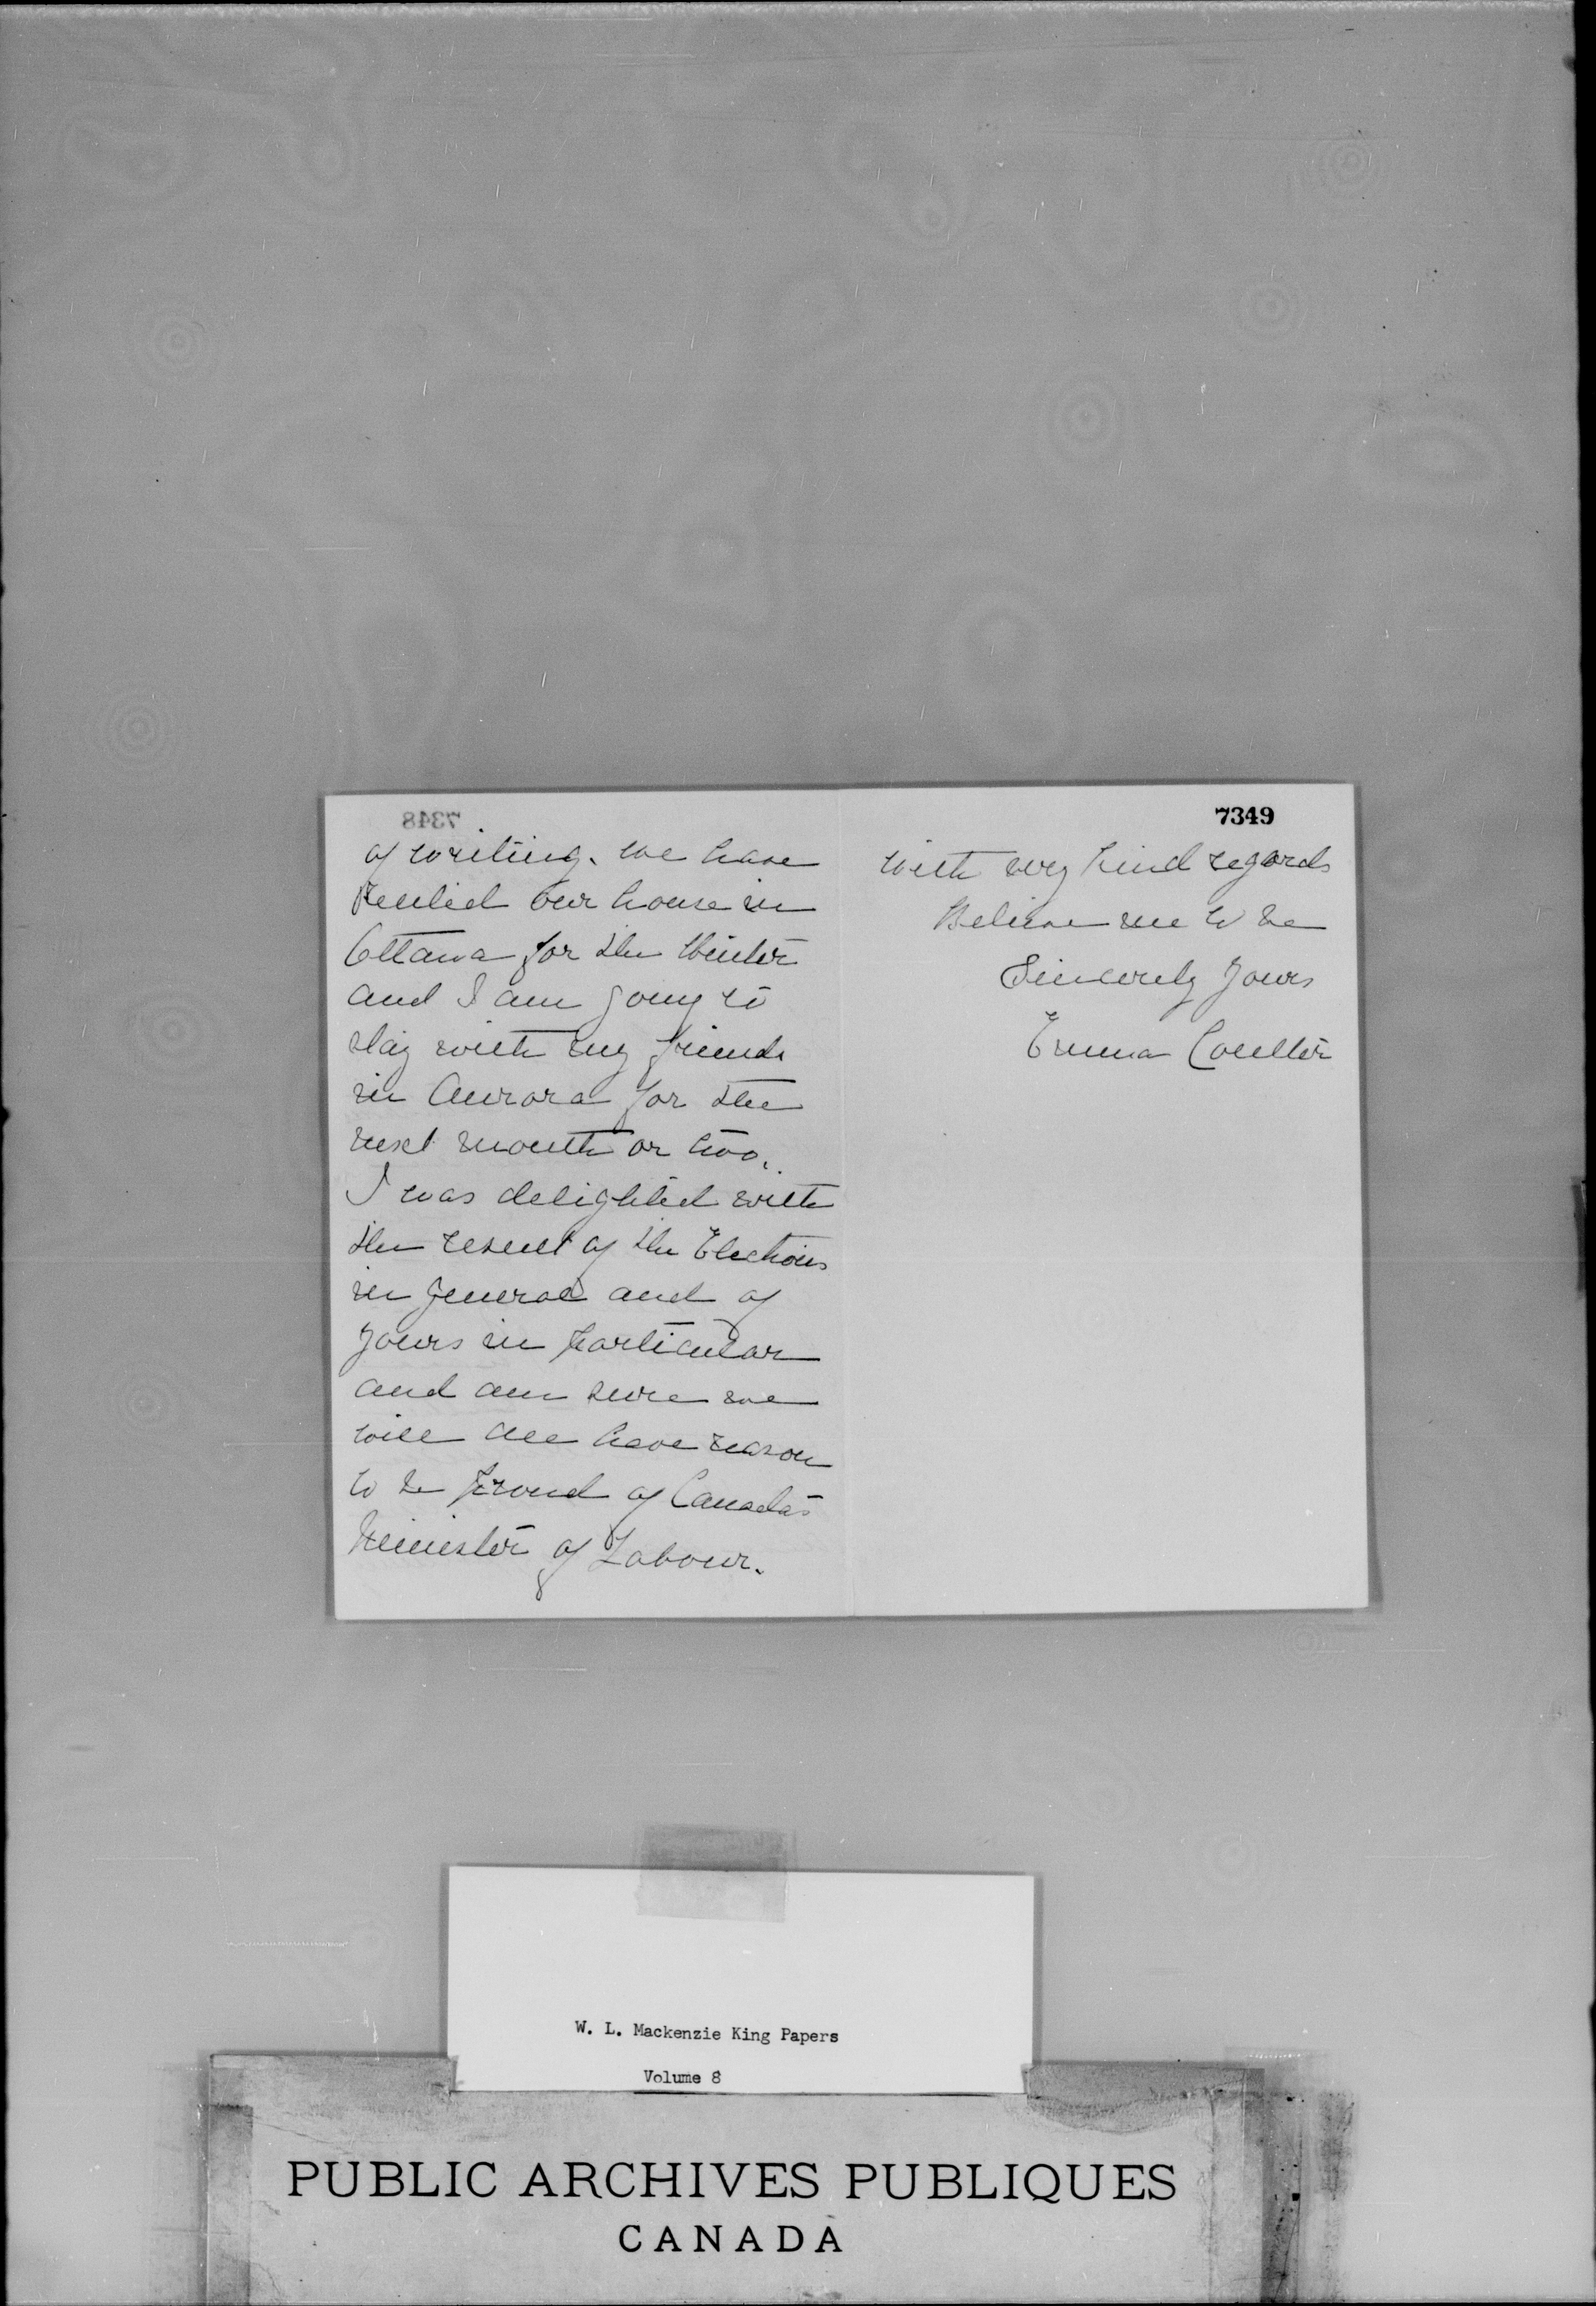 7348
of writing. We have
rented our house in
Ottawa for the Winter
and I am going to
stay with my friends
in Aurora for the
next month or two.
I was delighted with
the result of the Elections
in general and of
yours in particular
and am sure we
will all have reason
to be proud of Canada's
Minister of Labour.
7349
With very kind regards
Believe me to be
Sincerely Yours
Emma Coulter
W. L. Mackenzie King Papers
Volume 8
PUBLIC ARCHIVES PUBLIQUES
CANADA